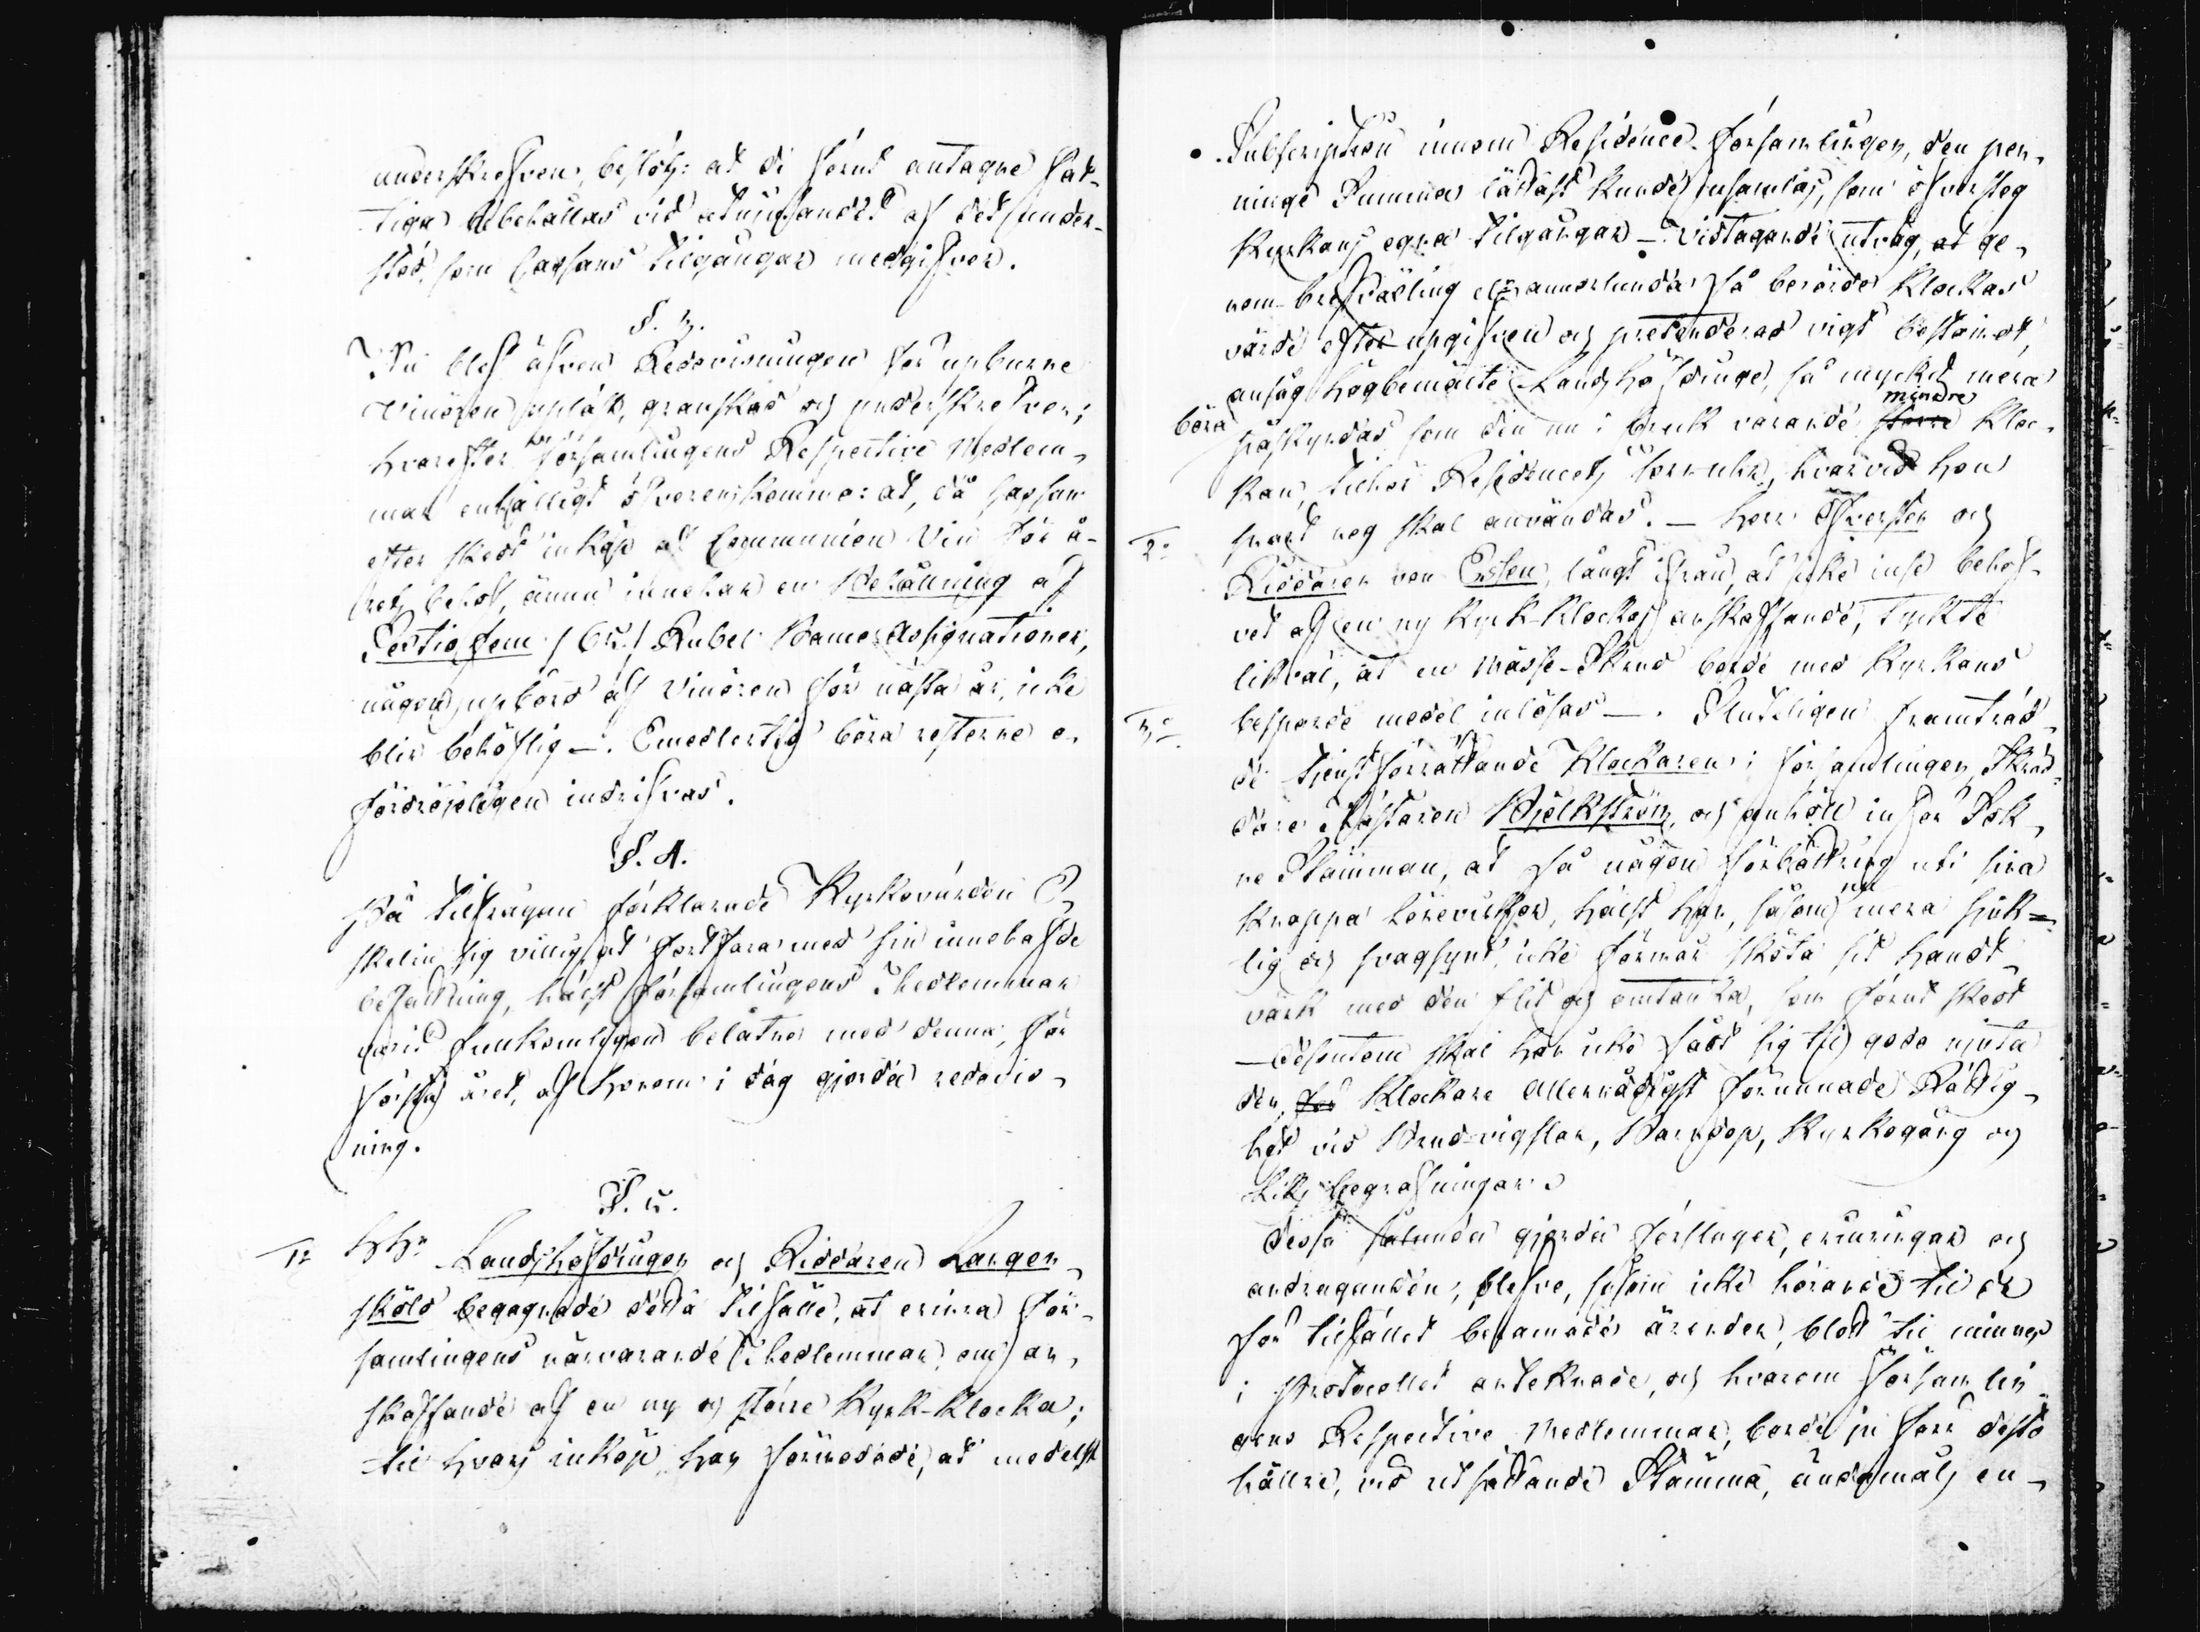 underskrefven, beslöts: at de förut antagne fat-
tiga bibehållas vid åtnjutandet af det under-
stöd, som Cassans tilgångar medgifver.
§. 3.
Nu blef äfven Redovisningen för upburne
Vinören upläst, granskad och underskrefven;
hvarefter Församlingens Respective Medlem-
mar enhälligt öfverenskommo: at, då Cassan
efter skedt inköp af Communion Vin för å-
rets behof, ännu innehar en Behållning af
Sextio fem /65/ Rubel Banco Assignationer,
någon upbörd af Vinören för nästa år, icke
blir behöflig —. Emedlertid böra resterne o-
fördröjeligen indrifvas.
§. 4.
På tilfrågan förklarade Kyrkovärden E-
skelin sig villig at fortfara med sin innehafde
befattning, hälst Församlingens Medlemmar
voro fullkomligen belåtne med denna, för
första året, af honom i dag gjorda redovis-
ning.
§. 5.
1º HHr Landshöfdingen och Riddaren Langen-
sköld begagnade detta tilfälle, at erinra För-
samlingens närvarande Medlemmar, om an-
skaffande af en ny och större Kyrk-Klocka;
til hvars inköp han förmodade, at medelst
Subscription inom Residence-Församlingen, den pen-
ninge Summa lättast kunde insamlas, som öfversteg
Kyrkans egna tilgångar — Vidtagande utväg, at ge-
nom brefväxling eller annorlunda få berörde Klockas
värde efter upgifven och pretenderad vigt bestämdt,
ansåg Högbemälte Landshöfdinge, så mycket mera
böra påskyndas som den nu i bruk varande större mindre Kloc-
kan, tilhör Residencets torn-uhr, hvarvid hon
snart nog skal användas. — Herr Öfversten och
2º Riddaren von Essen, långt ifrån at icke inse behof-
vet af en ny Kyrk-Klockas anskaffande, tyckte
likväl, at en Mässe-Skrud borde med Kyrkans
3º besparde medel inlösas —. Slutligen framträd-
de tjenstförrättande Klockaren i församlingen, Skräd-
dare Mästaren Mjölkström, och anhöll inför Sok-
ne Stämman, at få någon förbättring uti sina
knappa lönevilkor, hälst han, såsom mera sjuk-
lig och svagsynt, icke förmår sköta sit handt-
värk med den flid och omtanka, som förut skedt
— dessutom skal han icke fådt sig til godo njuta
den, för Klockare Allernådigst förunnade Rättig-
het vid Brudvigslar, Barndop, Kyrkogång och
Liks begrafningar.
Dessa sålunda gjorda förslager, erinringar och
andraganden, blefvo, såsom icke hörande til de
för tilfället beramade ärenden, blott til minnes
i Protocollet antecknade, och hvarom Församlin-
gens Respective Medlemmar, borde ju förr desto
hällre, vid utsättande Stämma, ändamåls en-